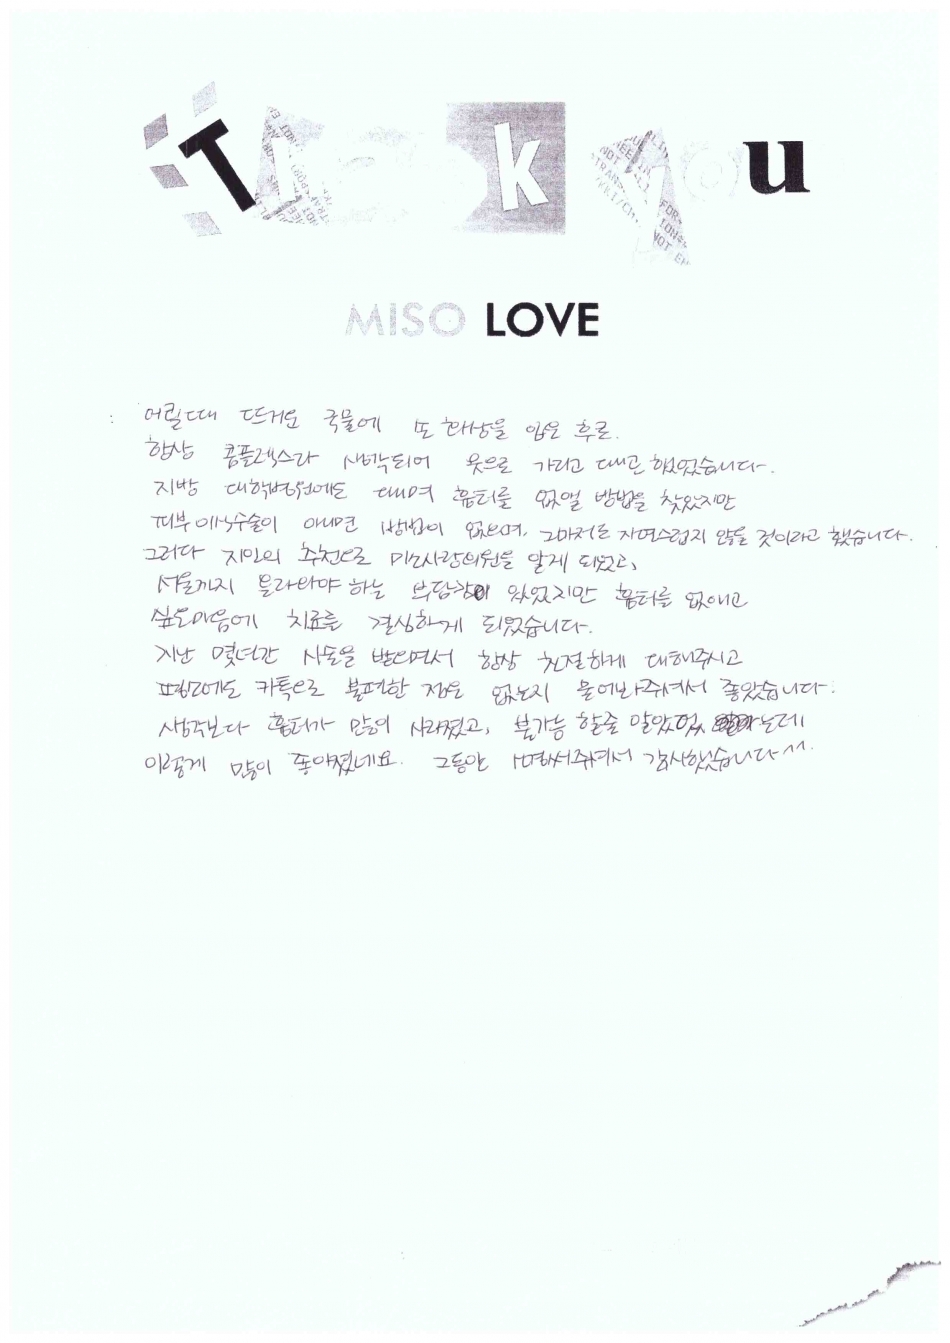 Thank you
MISO LOVE
어릴때 뜨거운 국물에 또 화상을 입은 후로.
항상 콤플렉스라 생각되어 옷으로 가리고 대곤 했었습니다.
지방 대학병원에도 대며 흉터를 없앨 방법을 찾았지만
피부이식수술이 아니면 방법이 없으며, 그마저도 자연스럽지 않을 것이라고 했습니다.
그러다 지인의 추천으로 미소사랑의원을 알게 되었고,
서울까지 올라와야 하는 부담감이 있었지만 흉터를 없애고
싶은마음에 치료를 결심하게 되었습니다.
지난 몇년간 시술을 받으면서 항상 친절하게 대해주시고
평소에도 카톡으로 불편한 점은 없는지 물어봐주셔서 좋았습니다.
생각보다 흉터가 많이 사라졌고, 불가능 할줄 알았었는데
이렇게 많이 좋아졌네요. 그동안 애써주셔서 감사했습니다^^.